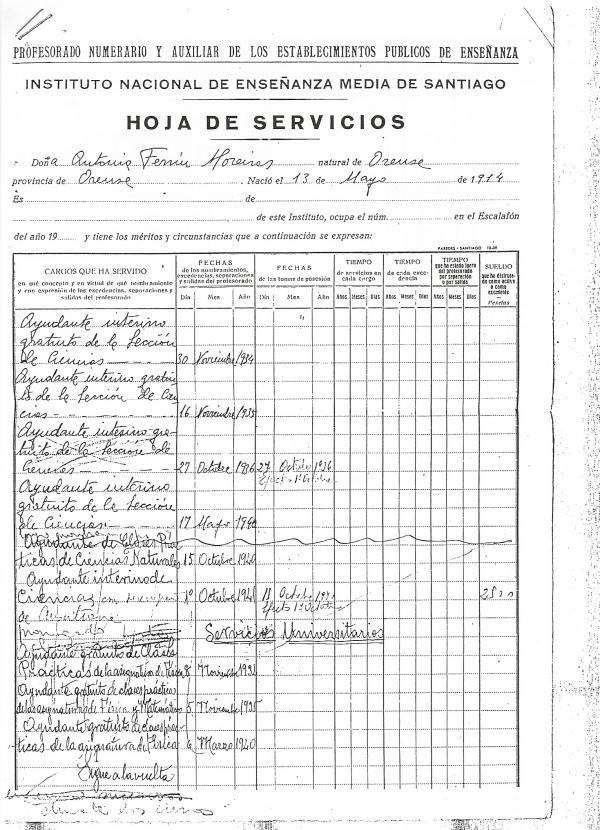 PROFESORADO NUMERARIO Y AUXILIAR DE LOS ESTABLECIMIENTOS PUBLICOS DE ENSEÑANZA
INSTITUTO NACIONAL DE ENSEÑANZA MEDIA DE SANTIAGO
HOJA DE SERVICIOS
Doña Antonia Ferrín Moreiras natural de Orense
provincia de Orense . Nació el 13 de Mayo de 1914
Es de
de este Instituto, ocupa el núm. en el Escalafón
del año 19 y tiene los méritos y circunstancias que a continuación se expresan:
PAREDES - SANTIAGO
CARGOS QUE HA SERVIDO
en qué concepto y en virtud de qué nombramiento
y con expresión de las excedencias, separaciones y
salidas del profesorado
FECHAS
de los nombramientos,
excedencias, separaciones
y salidas del profesorado
Día Mes Año
FECHAS
de las tomas de posesión
Día Mes Año
TIEMPO
de servicios en
cada cargo
Años Meses Días
TIEMPO
de cada excedencia
Años Meses Días
TIEMPO
que ha estado fuera
del profesorado
por separación
o por salida
Años Meses Días
SUELDO
que ha disfrutado
como activo
o como
excedente
Pesetas
Ayudante interino
gratuito de la Sección
de Ciencias 30 Noviembre 1934
Ayudante interino gratui-
to de la Sección de Cien-
cias 16 Noviembre 1935
Ayudante interino gra-
tuito de la Sección de
Ciencias 27 Octubre 1936 27 Octubre 1936
Efectos 1º Octubre
Ayudante interino
gratuito de la Sección
de Ciencias 17 Mayo 1940
Ayudante de Clases Prác-
ticas de Ciencias Naturales 15 Octubre 1940
Ayudante interino de
Ciencias con 1º Octubre 1941 Octubre
de Efectos 1º Octubre
Servicios Universitarios
Ayudante gratuito de Clases
Prácticas de la asignatura de Física 8 Noviembre
Ayudante gratuito de clases prácticas
de las asignaturas de Física y Matemáticas 5 Noviembre 1935
Ayudante gratuito de Clases prác-
ticas de la asignatura de Física 6 Marzo 1940
Sigue a la vuelta